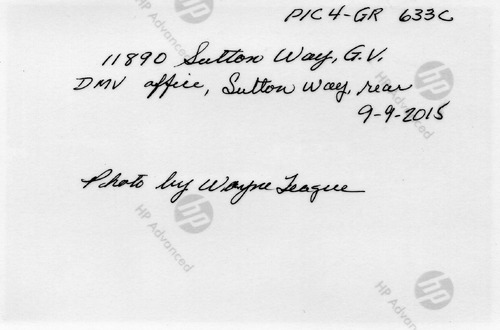 PIC 4-GR 633C
11890 Sutton Way, G.V.
DMV office, Sutton Way, rear
9-9-2015
Photo by Wayne League
hp
HP Advanced
hp
HP Advanced
hp
HP Advanced
hp
HP Advanced